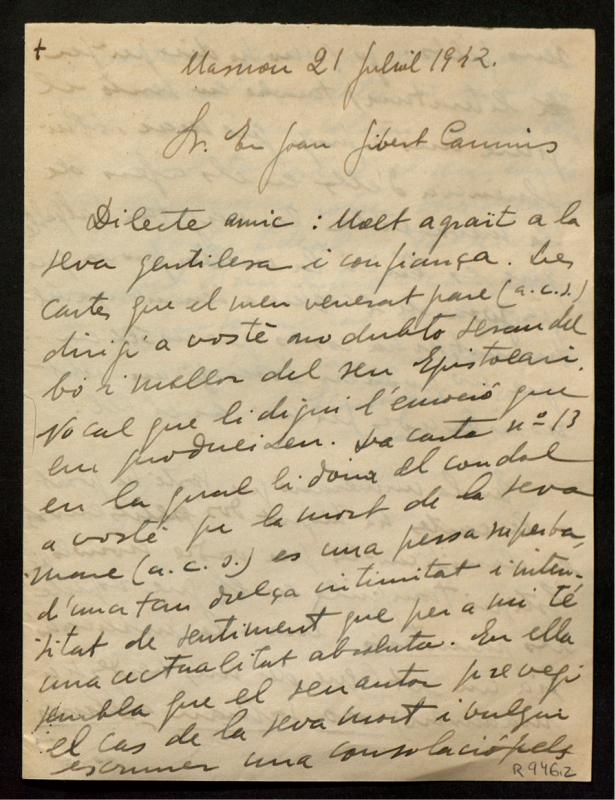 +
Masnou 21 Juliol 1942.
Sr. En Joan Gibert Camins
Dilecte amic: Molt agraït a la
seva gentilesa i confiança. Les
cartes que el meu venerat pare (a.c.s.)
dirigí a vostè no dubto seran del
bo i millor del seu Epistolari.
No cal que li digui l'emoció que
em produeixen. La carta nº 13
en la qual li dona el condol
a vostè per la mort de la seva
mare (a.c.s.) es una pessa superba,
d'una tan dolça intimitat i inten-
sitat de sentiment que per a mi té
una actualitat absoluta. En ella
sembla que el seu autor prevegi
el cas de la seva mort i vulgui
escriurer una consolació pels
R 946.2